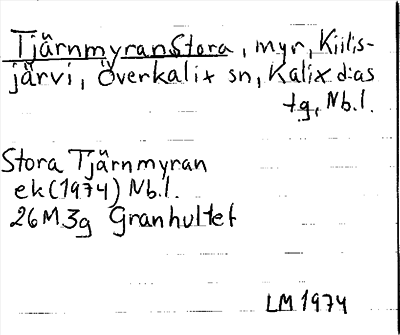 Tjärnmyran Stora, myr, Kiilis-
järvi, Överkalix sn, Kalix d:as
t.g, Nb.l.
Stora Tjärnmyran
ek (1974) Nb.l.
26M3g Granhultet
LM 1974